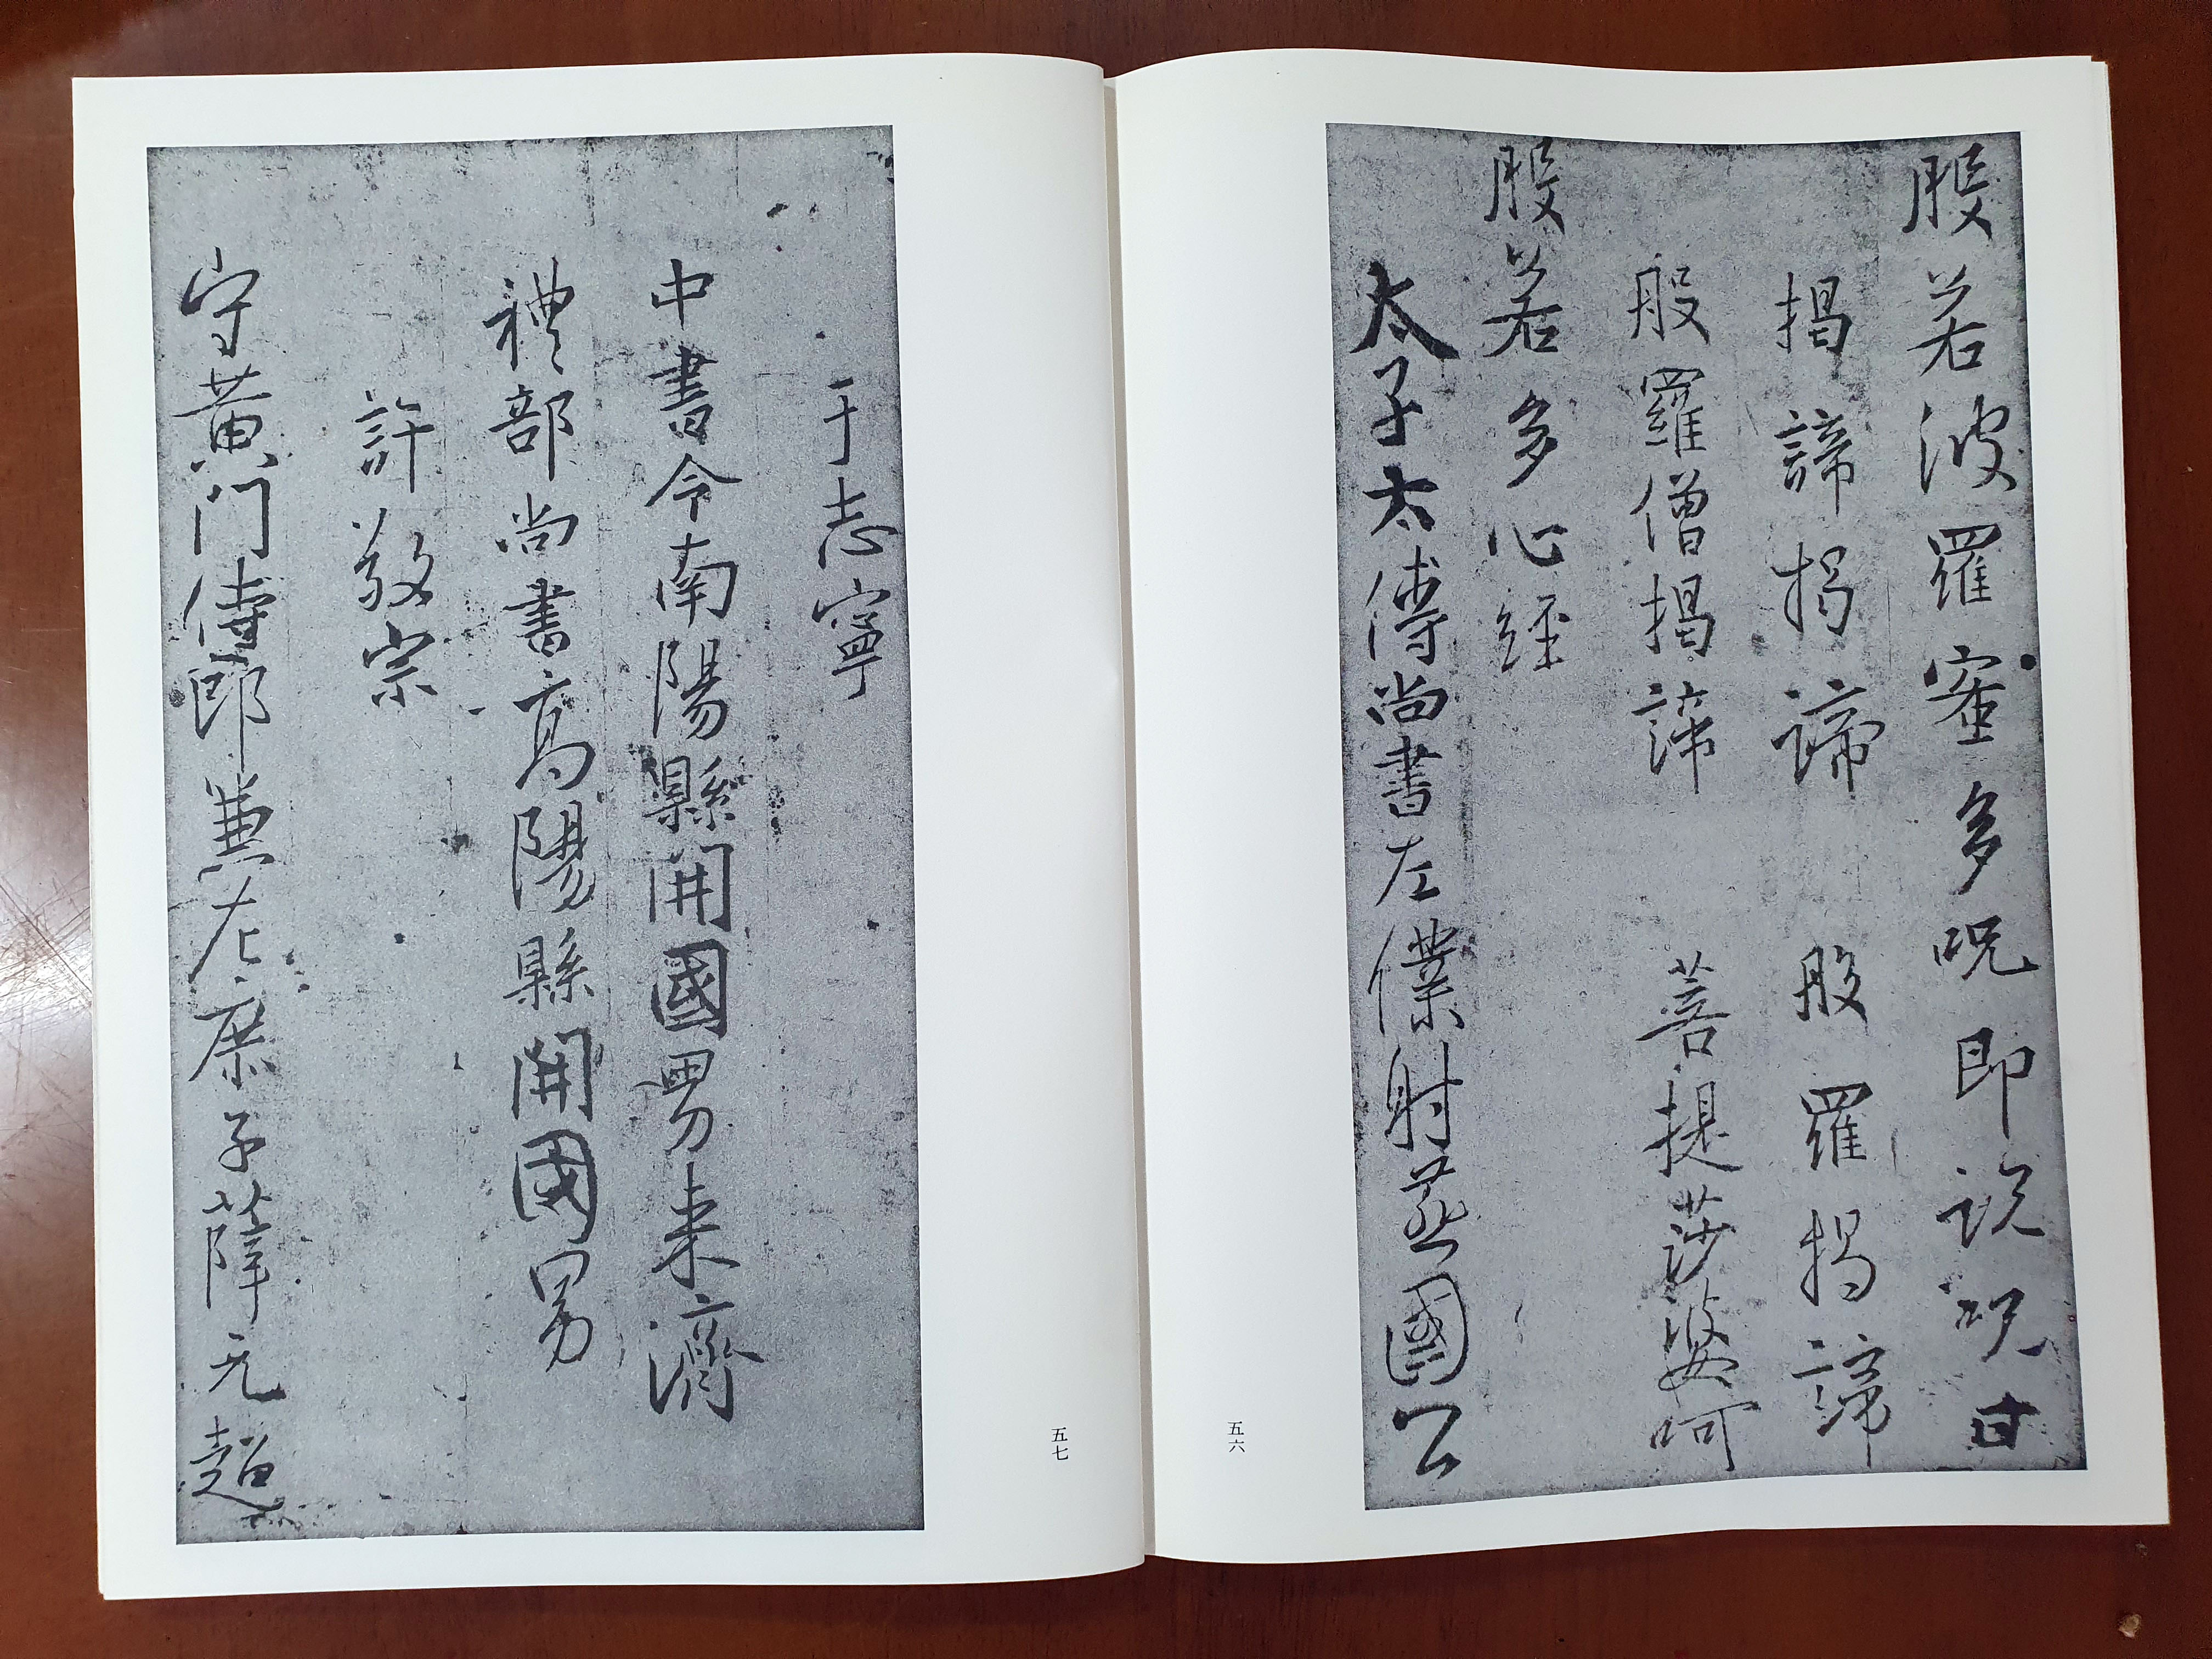 般若波羅蜜多呪即説呪曰
揭諦揭諦 般羅揭諦
般羅僧揭諦 菩提莎婆呵
般若多心經
太子太傅尚書左僕射燕國公
五六
于志寧
中書令南陽縣開國男来濟
禮部尚書高陽縣開國男
許敬宗
守黄门侍郎兼左庶子薛元超
五七